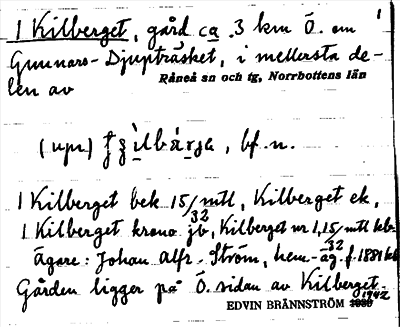 1 Kilberget, gård ca 3 km Ö. om
Gunnars-Djupträsket, i mellersta de-
len av Råneå sn och tg, Norrbottens län
(upr.) , bf. n.
1 Kilberget bek 15/ mtl, Kilberget ek,
1 Kilberget krono jb 32, Kilberget nr 1, 15/ mtl
ägare: Johan Alfr. Ström, hem-äg. f. 1881
Gården ligger på Ö. sidan av Kilberget.
EDVIN BRÄNNSTRÖM 1942